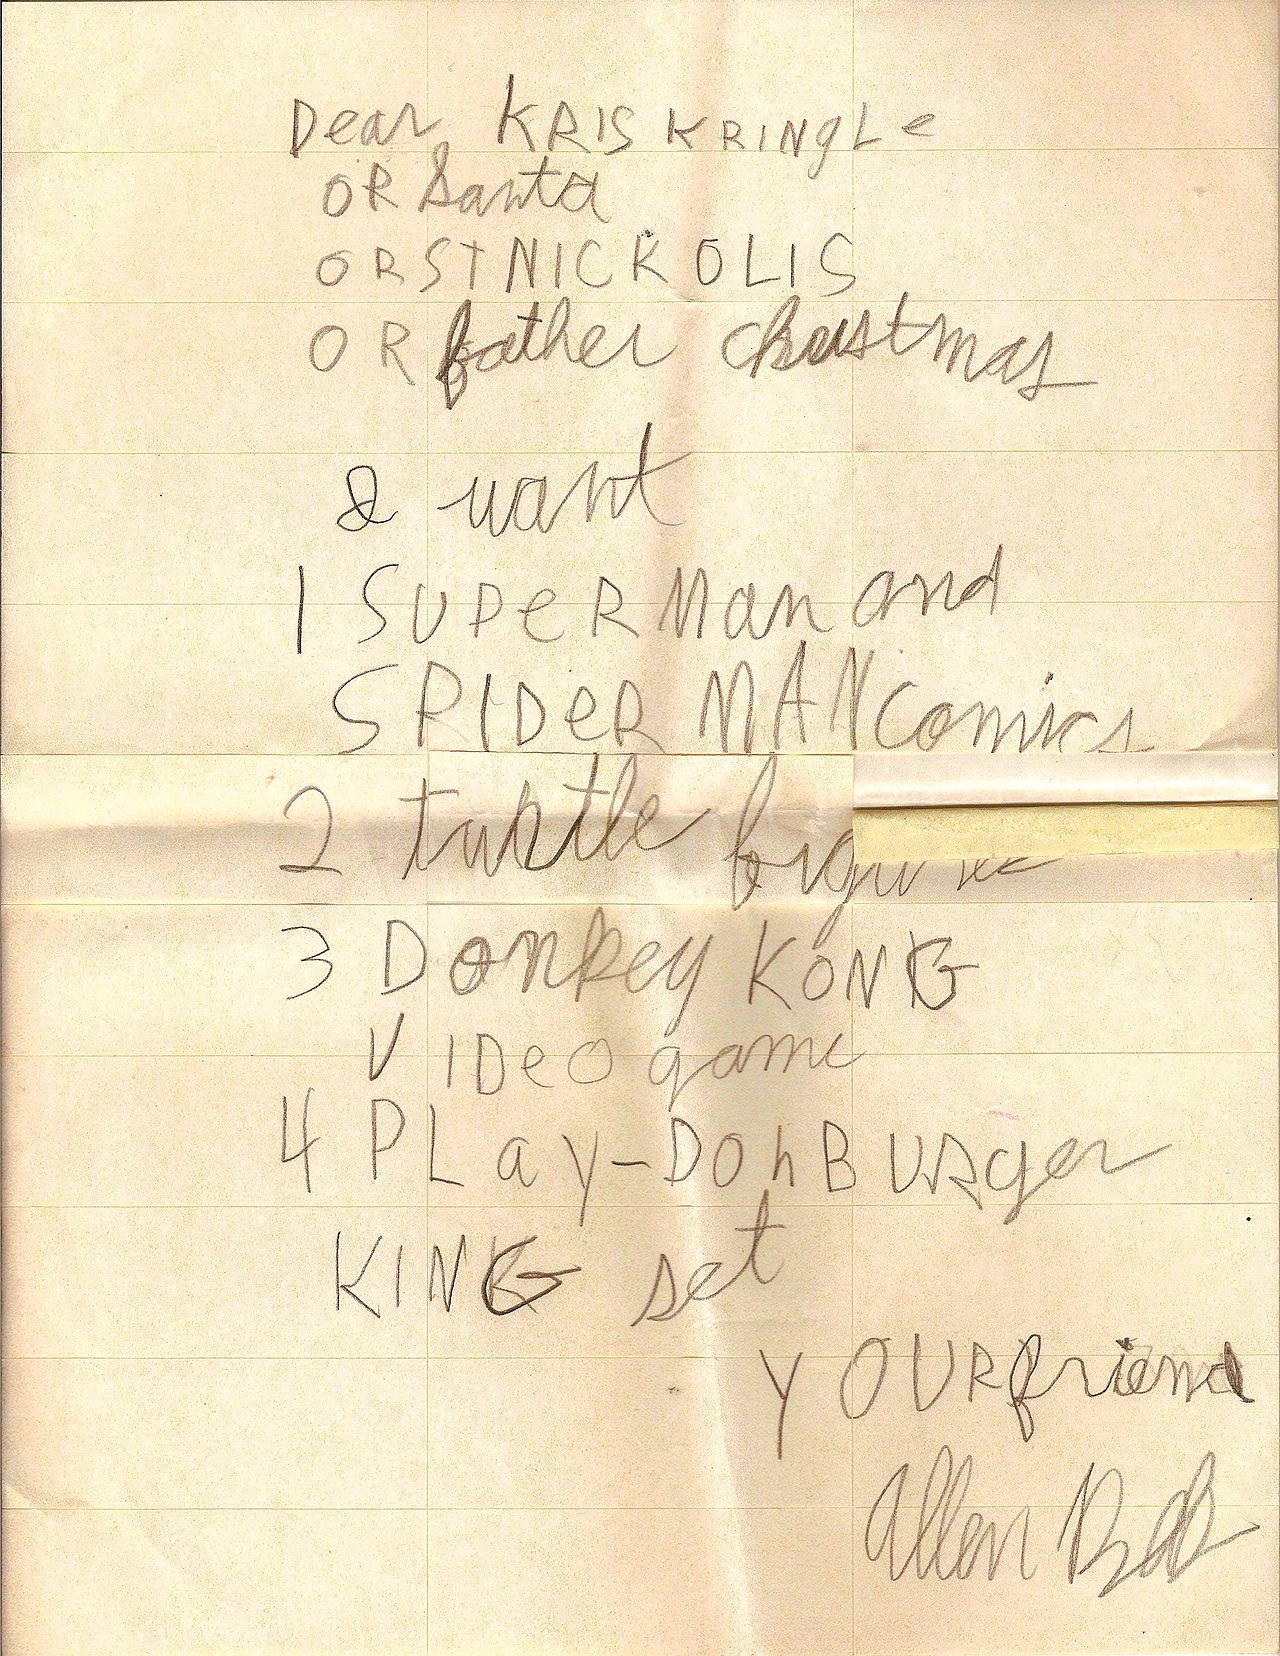 Dear KRIS KRINgLe
OR Santa
OR ST NICKOLIS
OR father christmas
I want
1 SUPeR Man and
SPIDeR MAN comics
2 turtle figure
3 Donkey KONG
VIDeO game
4 PLay-DOh BURger
KING set
yOUR friend
Allen